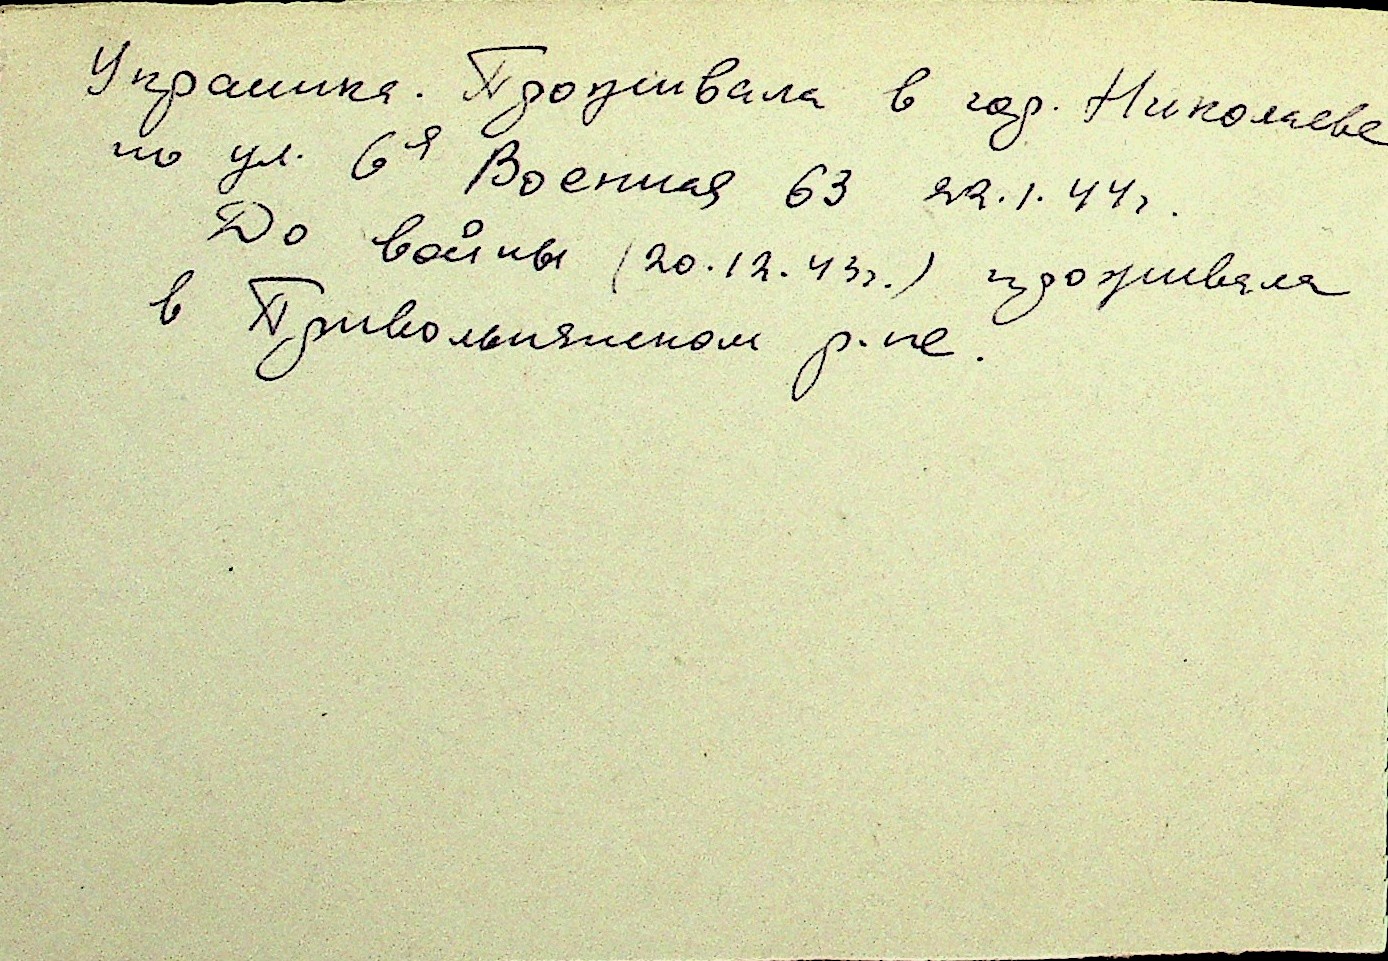 Украинка. Проживала в гор. Николаеве
по ул. 6я Военная 63 22.1.44г.
До войны (20.12.43г.) проживала
в Привольнянском р-не.